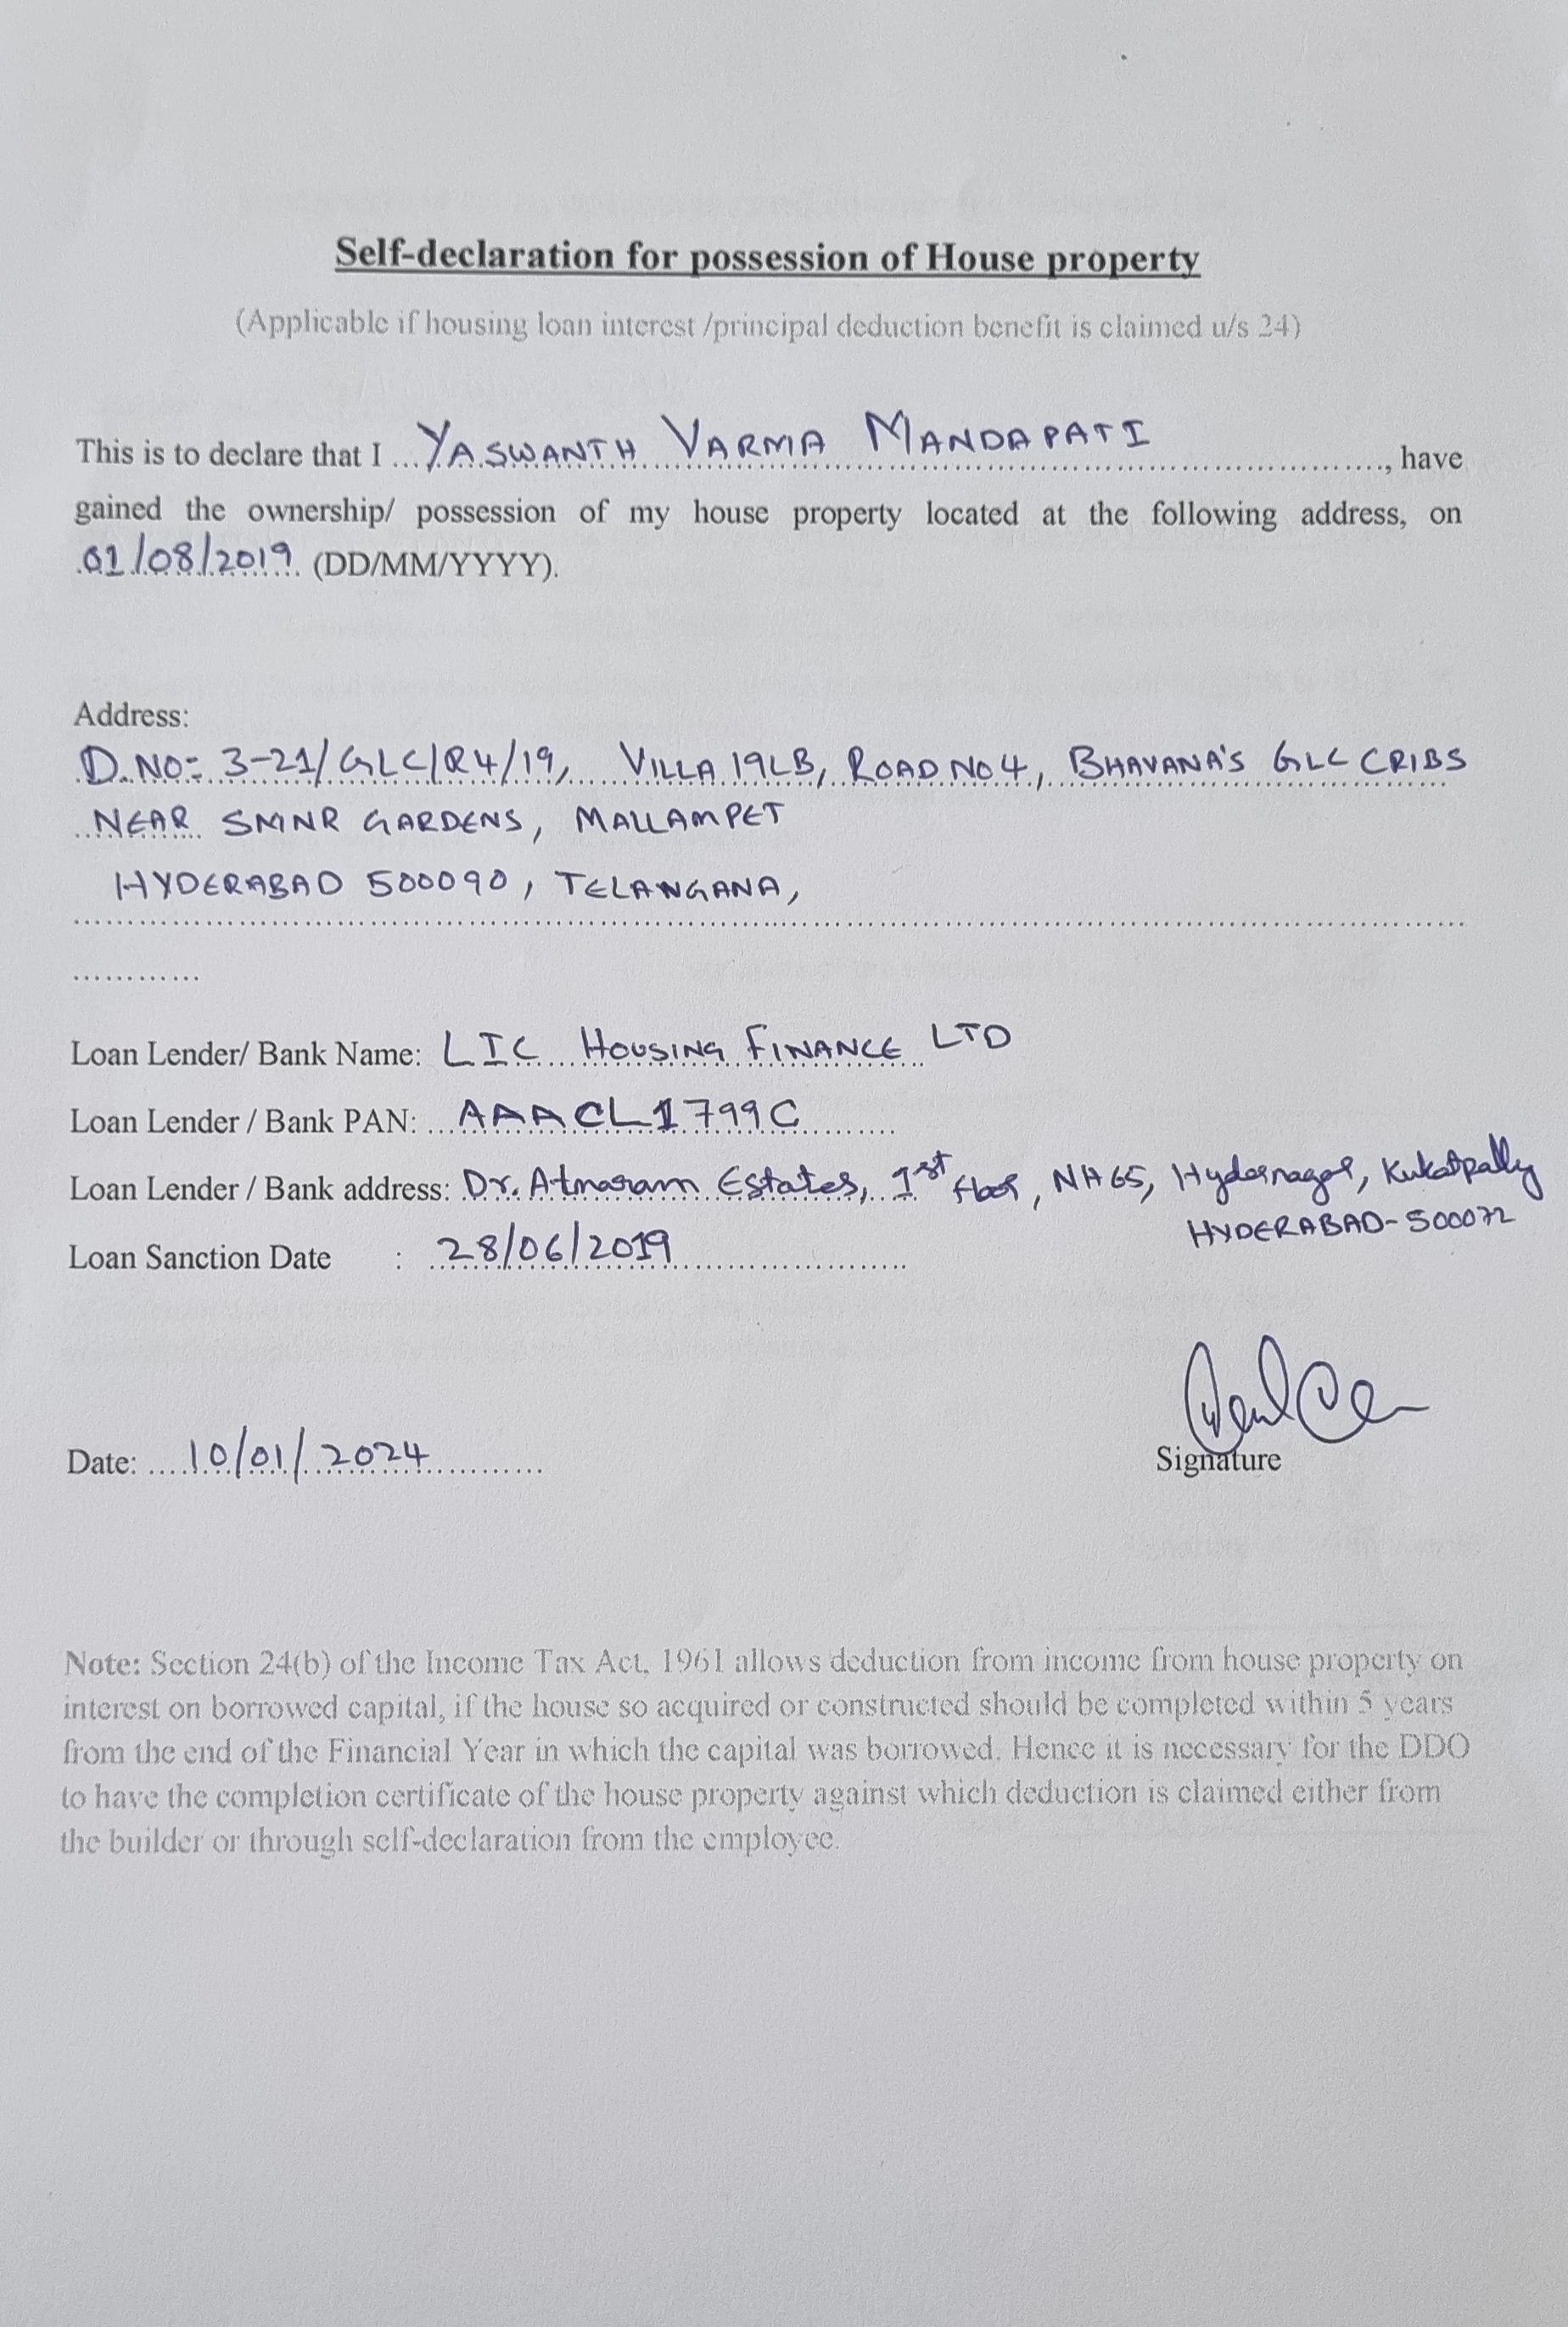 Self-declaration for possession of House property
(Applicable if housing loan interest /principal deduction benefit is claimed u/s 24)
This is to declare that I ... YASWANTH VARMA MANDAPATI ..., have
gained the ownership/ possession of my house property located at the following address, on
01/08/2019. (DD/MM/YYYY).
Address:
D.NO:- 3-21/GLC/R4/19, VILLA 19LB, ROAD NO 4, BHAVANA'S GLC CRIBS
NEAR SMNR GARDENS, MALLAMPET
HYDERABAD 500090, TELANGANA,
Loan Lender/ Bank Name: LIC HOUSING FINANCE LTD
Loan Lender / Bank PAN: AAACL1799C
Loan Lender / Bank address: Dr. Atmaram Estates, 1st floor, NH65, Hydernagar, Kukatpally
HYDERABAD-500072
Loan Sanction Date : 28/06/2019
Date: 10/01/2024
Signature
Note: Section 24(b) of the Income Tax Act, 1961 allows deduction from income from house property on
interest on borrowed capital, if the house so acquired or constructed should be completed within 5 years
from the end of the Financial Year in which the capital was borrowed. Hence it is necessary for the DDO
to have the completion certificate of the house property against which deduction is claimed either from
the builder or through self-declaration from the employee.